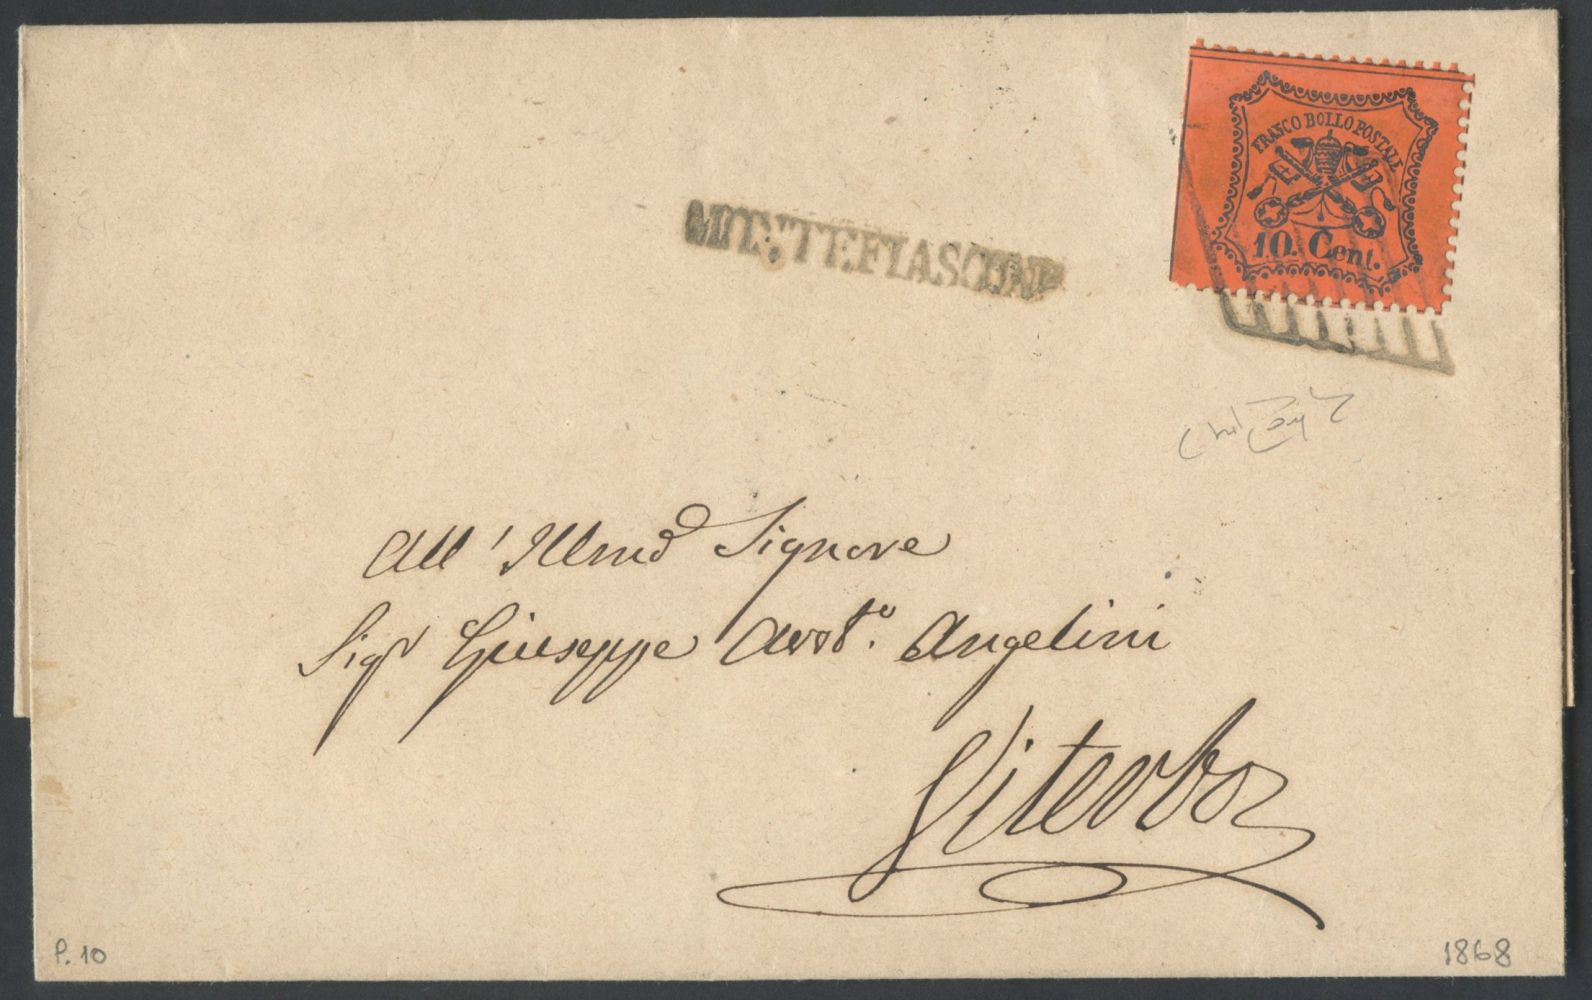 FRANCO BOLLO POSTALE
10. Cent.
MONTEFIASCONE
All' Illmo Signore
Sigr Giuseppe Angelini
Viterbo
P. 10
1868